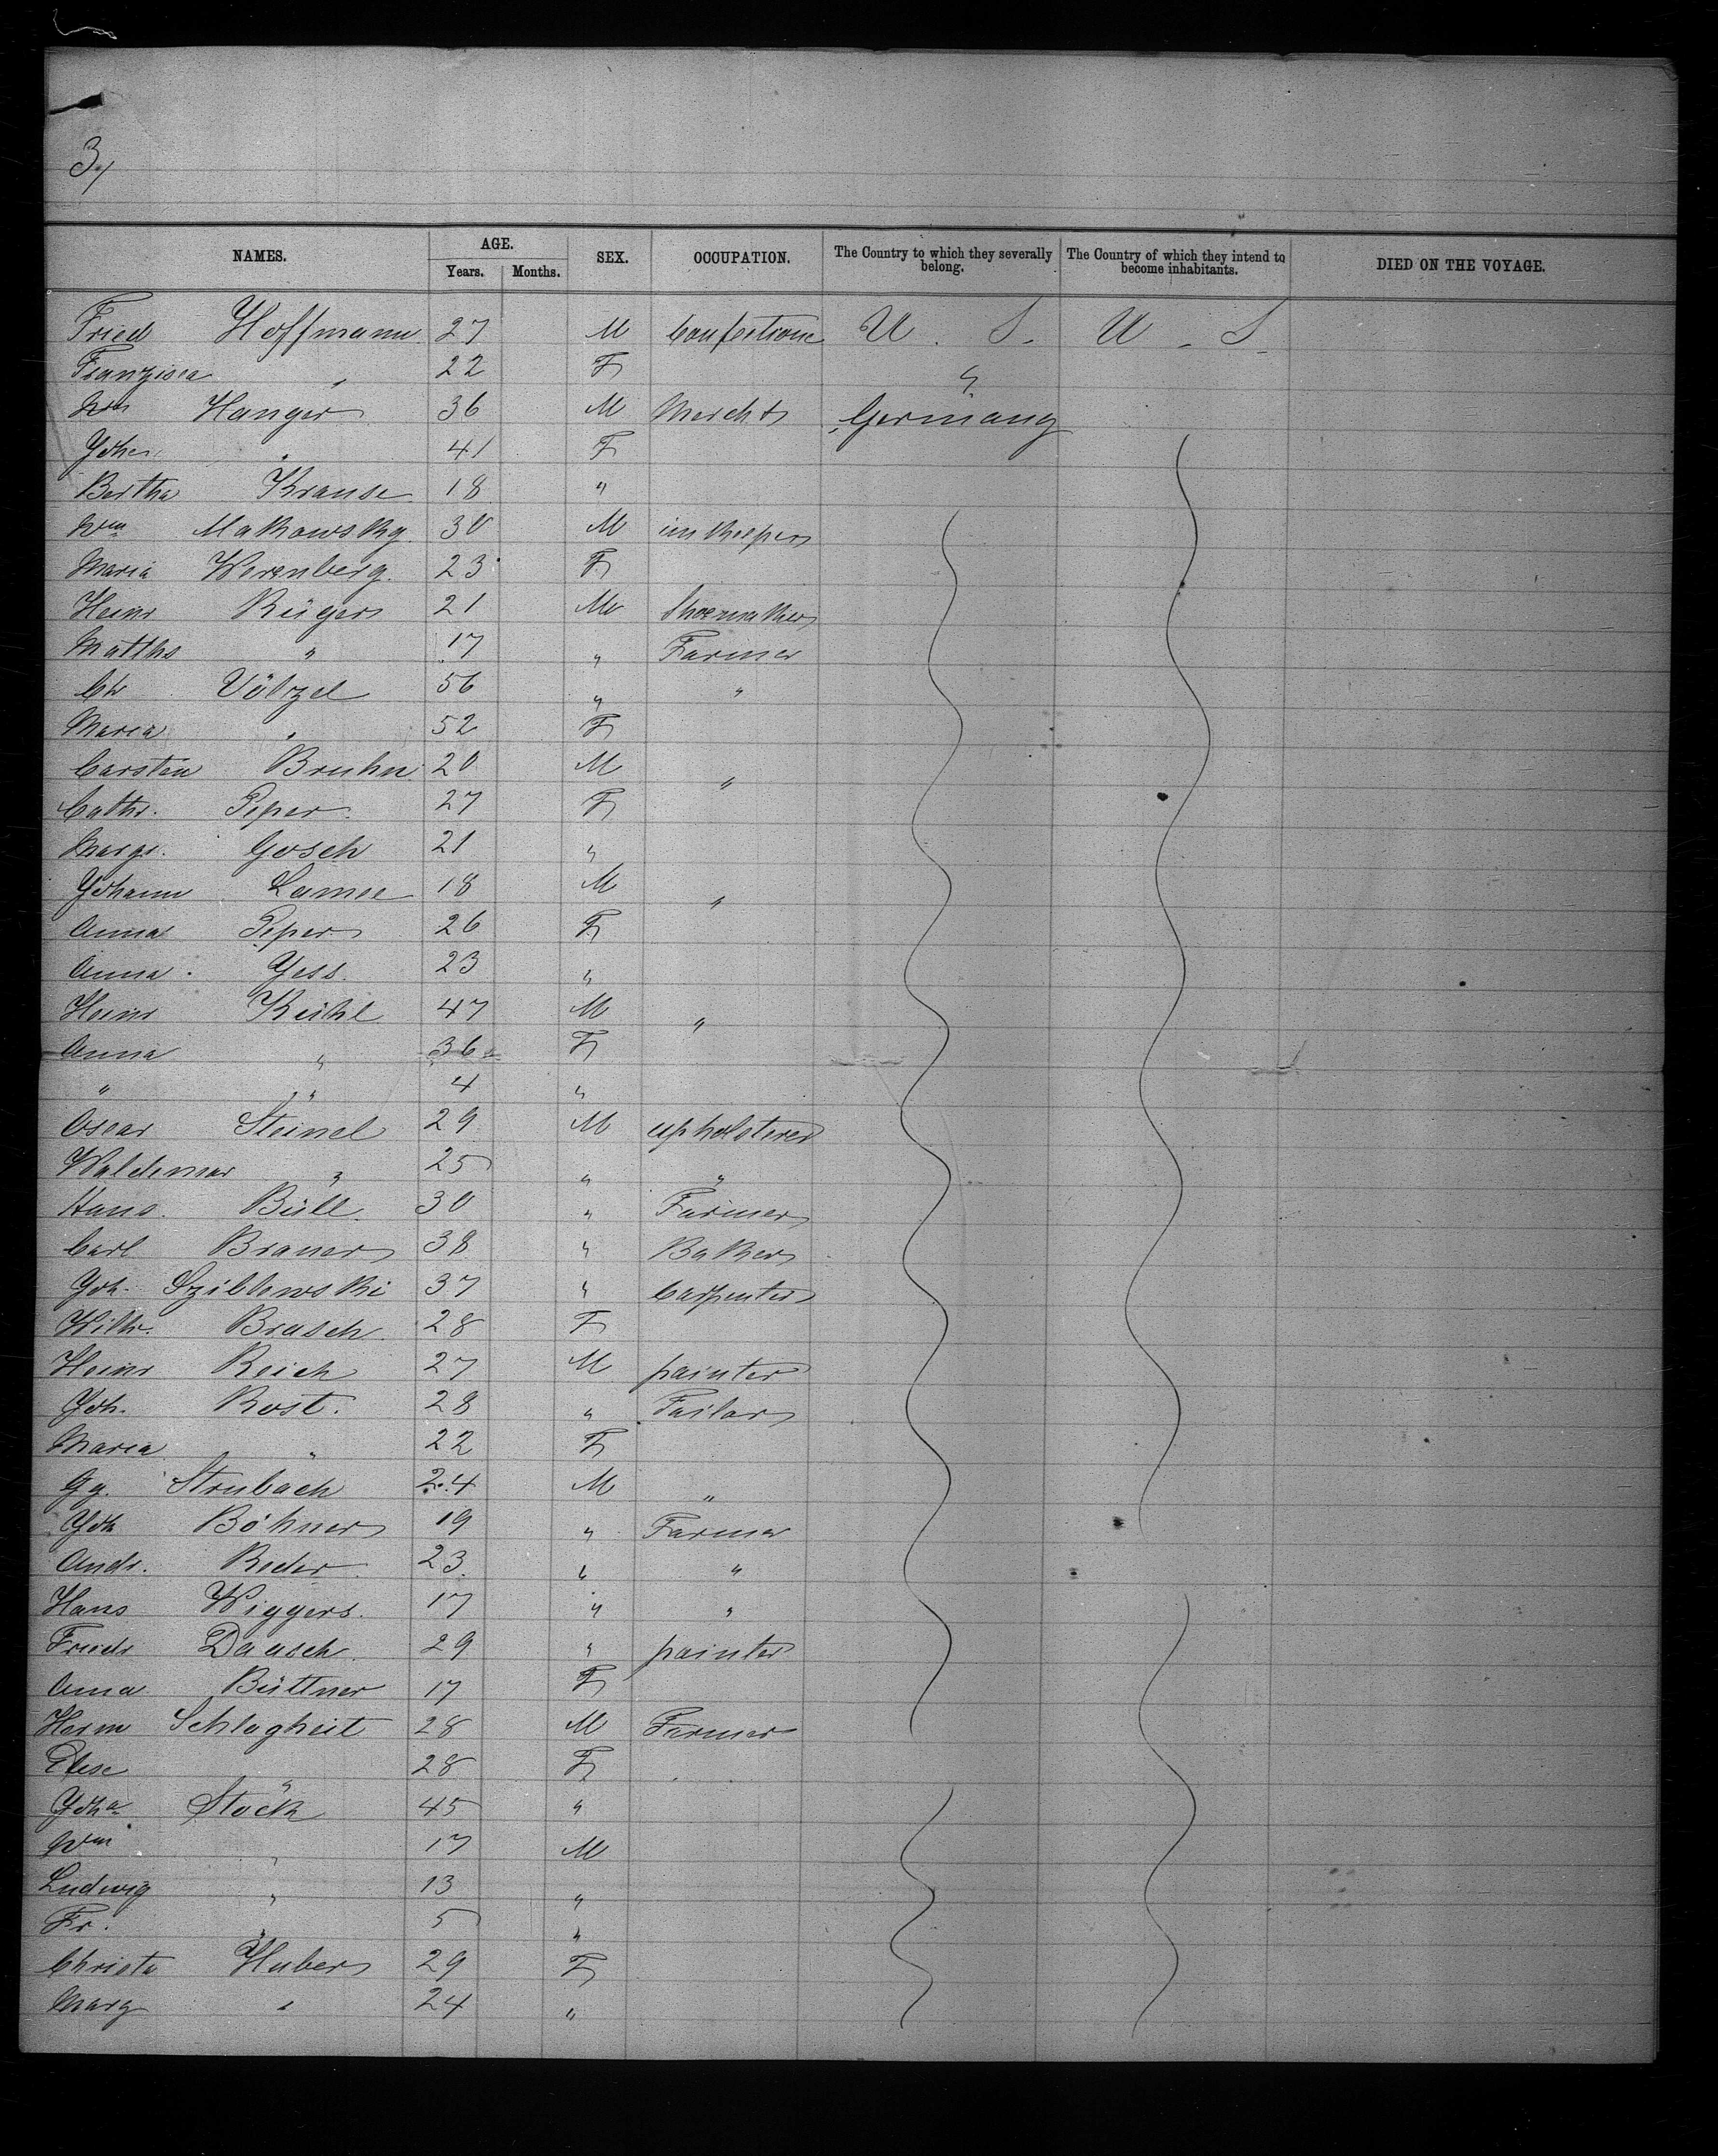 3/
NAMES. AGE. Years. Months. SEX. OCCUPATION. The Country to which they severally belong. The Country of which they intend to become inhabitants. DIED ON THE VOYAGE.
Fried Hoffmann 27 M Confectione U. S. U. S.
Franzisca " 22 F "
Wm Hanger 36 M Mercht Germany
Joh " 41 F
Bertha Krause 18 "
Wm Makowsky 30 M innkeeper
Maria Werenberg 23 F
Heinr Rüger 21 M Shoemaker
Matths " 17 " Farmer
Ch Völzel 56 " "
Maria " 52 F
Carsten Bruhn 20 M "
Cathr. Peper 27 F
Margr. Gosch 21 "
Johann Lamse 18 M "
Anna Peper 26 F
Anna Jess 23 "
Heinr Kühl 47 M "
Anna " 36 F
" " 4 "
Oscar Steinel 29 M upholsterer
Waldemar " 25 " "
Hans Büll 30 " Farmer
Carl Brauer 38 " Baker
Joh. Sziblowski 37 " Carpenter
Wilh. Brasch 28 F
Heinr Reich 27 M painter
Joh. Rost. 28 " Tailor
Maria " 22 F
Gg. Strubach 24 M "
Joh Böhner 19 " Farmer
Andr. Reder 23 " "
Hans Wiggers 17 " "
Friedr Daasch 29 " painter
Anna Büttner 17 F
Herm Schlagheit 28 M Farmer
Elise " 28 F
Joha Stöck 45 "
Wm " 17 M
Ludwig " 13 "
Fr. " 5 "
Christa Huber 29 F
Marg " 24 "